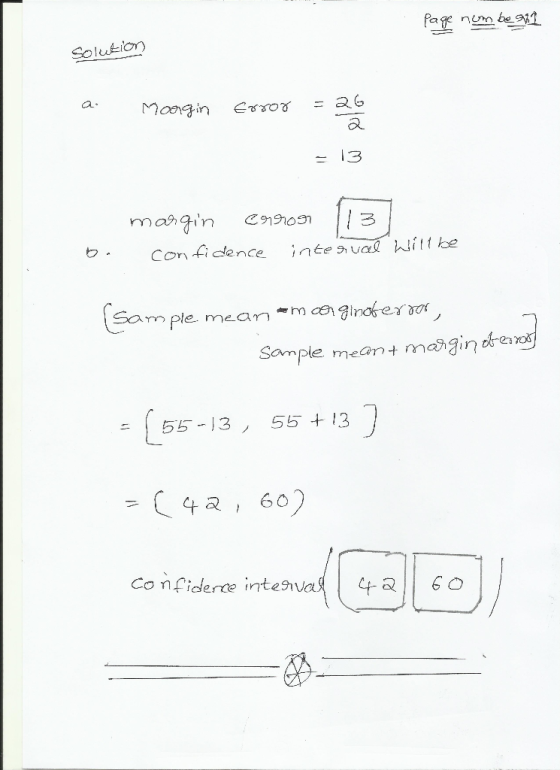 Page number:1
Solution
a. Margin Error = 26
2
= 13
margin error 13
b. Confidence interval will be
[Sample mean - margin of error,
Sample mean + margin of error]
= [55-13, 55+13]
= (42, 60)
Confidence interval (42 60)